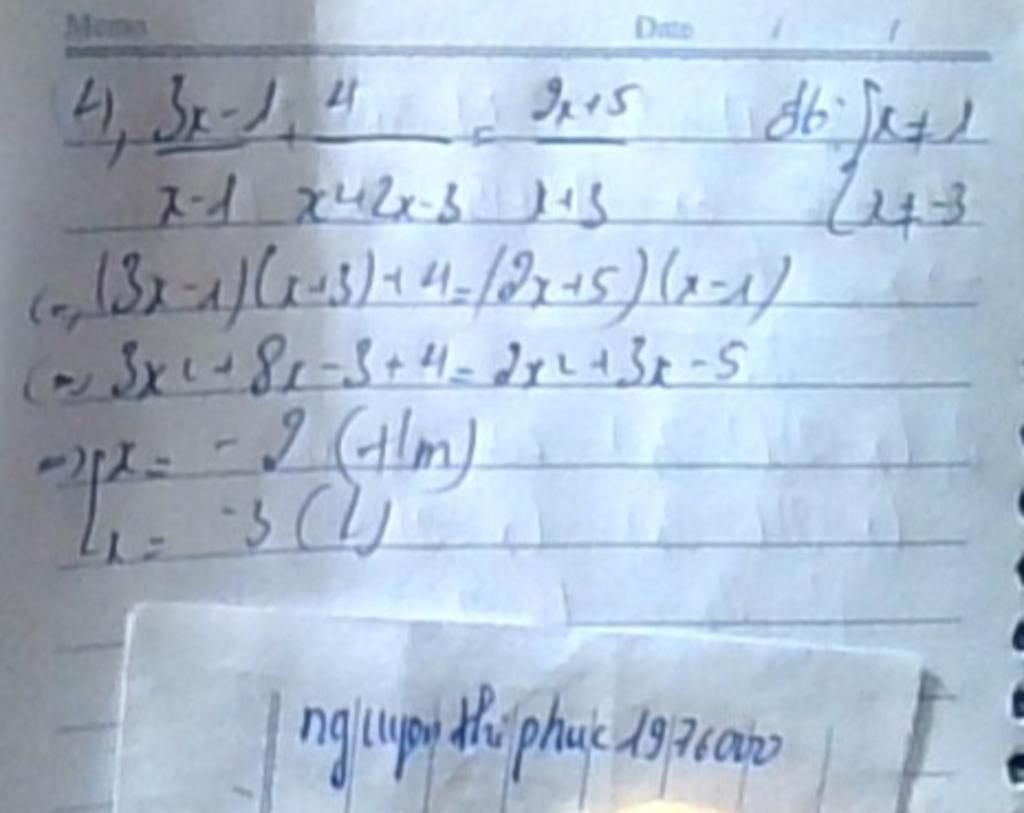 Memo Date / /
4, 3x-1/x-1 + 4/x²+2x-3 = 2x+5/x+3 đk: { x≠1
{ x≠-3
(=) (3x-1)(x+3)+4=(2x+5)(x-1)
(=) 3x²+8x-3+4=2x²+3x-5
=> [ x = -2 (t/m)
[ x = -3 (L)
nguyen thi phuc 1976